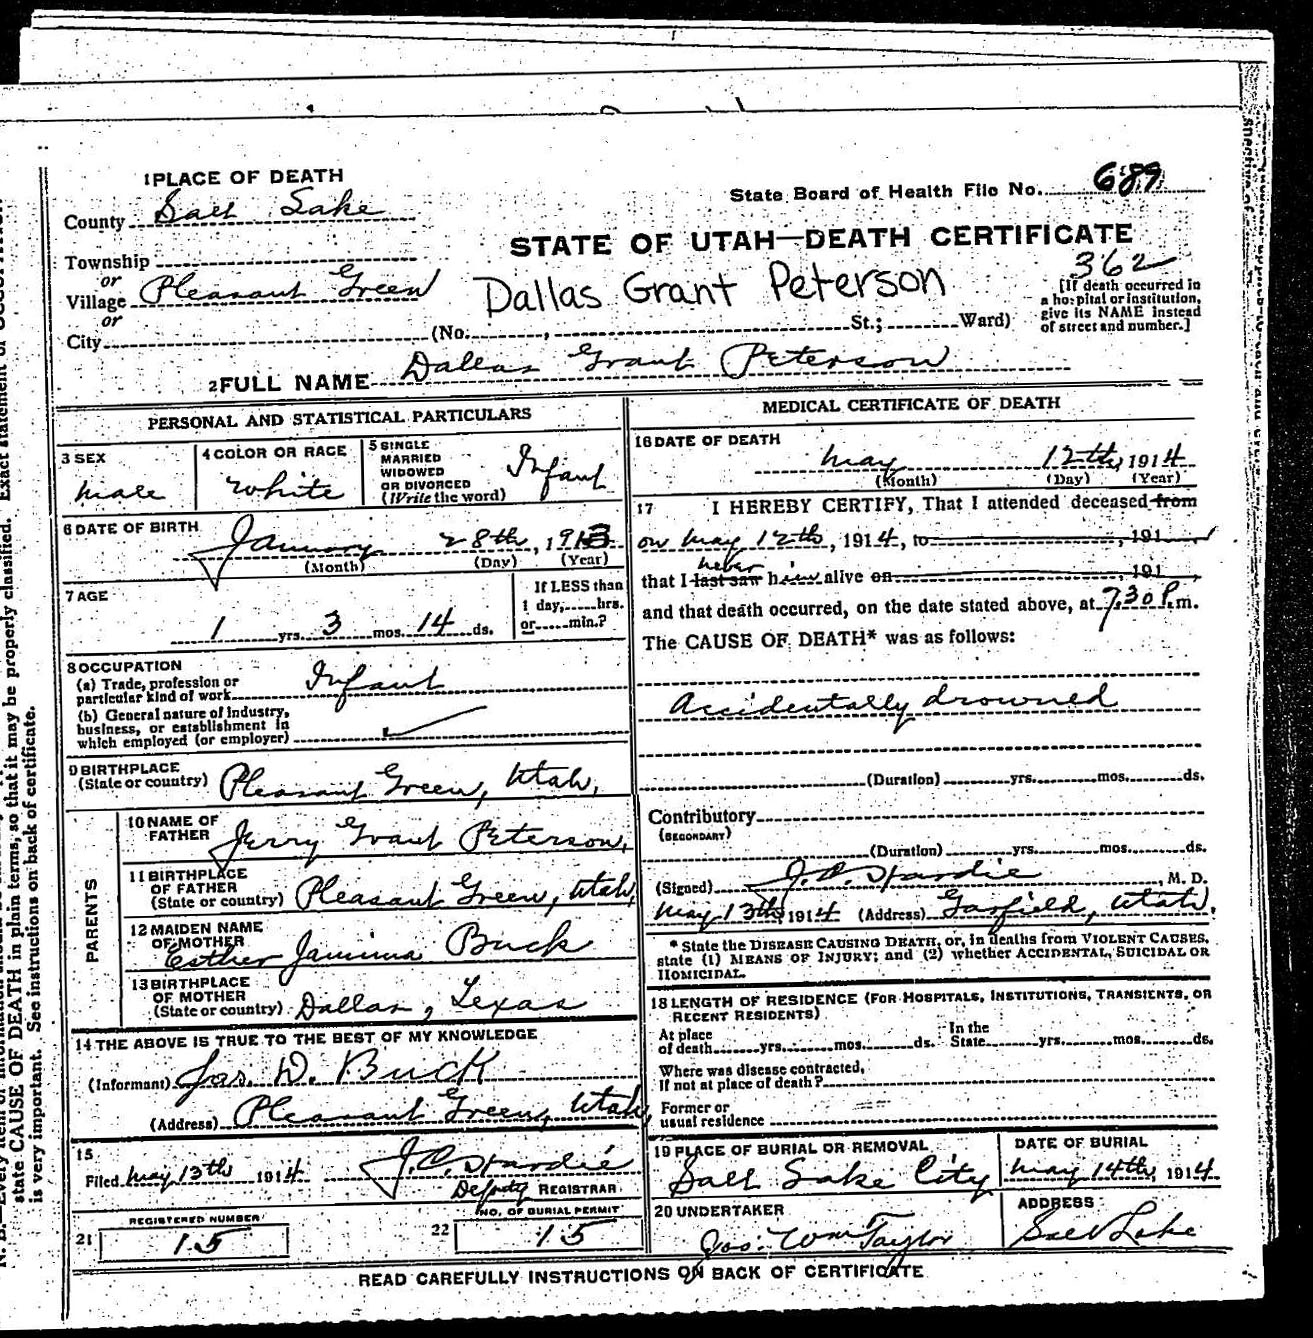 1 PLACE OF DEATH
State Board of Health File No. 689
County Salt Lake
STATE OF UTAH—DEATH CERTIFICATE
Township
362
or
Village Pleasant Green
Dallas Grant Peterson
[If death occurred in
a hospital or institution,
give its NAME instead
of street and number.]
or
City (No. , St.; Ward)
2 FULL NAME Dallas Grant Peterson
PERSONAL AND STATISTICAL PARTICULARS
3 SEX
male
4 COLOR OR RACE
White
5 SINGLE
MARRIED
WIDOWED
OR DIVORCED
(Write the word)
Infant
6 DATE OF BIRTH
January 28th, 1913
(Month) (Day) (Year)
7 AGE
1 yrs. 3 mos. 14 ds.
If LESS than
1 day, hrs.
or min.?
8 OCCUPATION
(a) Trade, profession or
particular kind of work Infant
(b) General nature of industry,
business, or establishment in
which employed (or employer)
9 BIRTHPLACE
(State or country) Pleasant Green, Utah,
PARENTS
10 NAME OF
FATHER Jerry Grant Peterson,
11 BIRTHPLACE
OF FATHER
(State or country) Pleasant Green, Utah,
12 MAIDEN NAME
OF MOTHER
Esther Jamima Buck
13 BIRTHPLACE
OF MOTHER
(State or country) Dallas, Texas
14 THE ABOVE IS TRUE TO THE BEST OF MY KNOWLEDGE
(Informant) Jas. D. Buck
(Address) Pleasant Green, Utah,
15
Filed May 13th 1914 J.C. Hardie
Deputy REGISTRAR
REGISTERED NUMBER
21 15
NO. OF BURIAL PERMIT
22 15
MEDICAL CERTIFICATE OF DEATH
16 DATE OF DEATH
May 12th, 1914
(Month) (Day) (Year)
17 I HEREBY CERTIFY, That I attended deceased from
on May 12th, 1914, to , 191
never
that I last saw him alive on , 191 ,
and that death occurred, on the date stated above, at 7:30 P.m.
The CAUSE OF DEATH* was as follows:
Accidentally drowned
(Duration) yrs. mos. ds.
Contributory
(SECONDARY)
(Duration) yrs. mos. ds.
(Signed) J.C. Hardie, M. D.
May 13th, 1914 (Address) Garfield, Utah,
* State the DISEASE CAUSING DEATH, or, in deaths from VIOLENT CAUSES,
state (1) MEANS OF INJURY; and (2) whether ACCIDENTAL, SUICIDAL OR
HOMICIDAL.
18 LENGTH OF RESIDENCE (FOR HOSPITALS, INSTITUTIONS, TRANSIENTS, OR
RECENT RESIDENTS)
At place
of death yrs. mos. ds.
In the
State yrs. mos. ds.
Where was disease contracted,
If not at place of death?
Former or
usual residence
19 PLACE OF BURIAL OR REMOVAL
Salt Lake City
DATE OF BURIAL
May 14th, 1914
20 UNDERTAKER
Jos. Wm Taylor
ADDRESS
Salt Lake
READ CAREFULLY INSTRUCTIONS ON BACK OF CERTIFICATE
state CAUSE OF DEATH in plain terms, so that it may be properly classified. Exact statement of
is very important. See instructions on back of certificate.